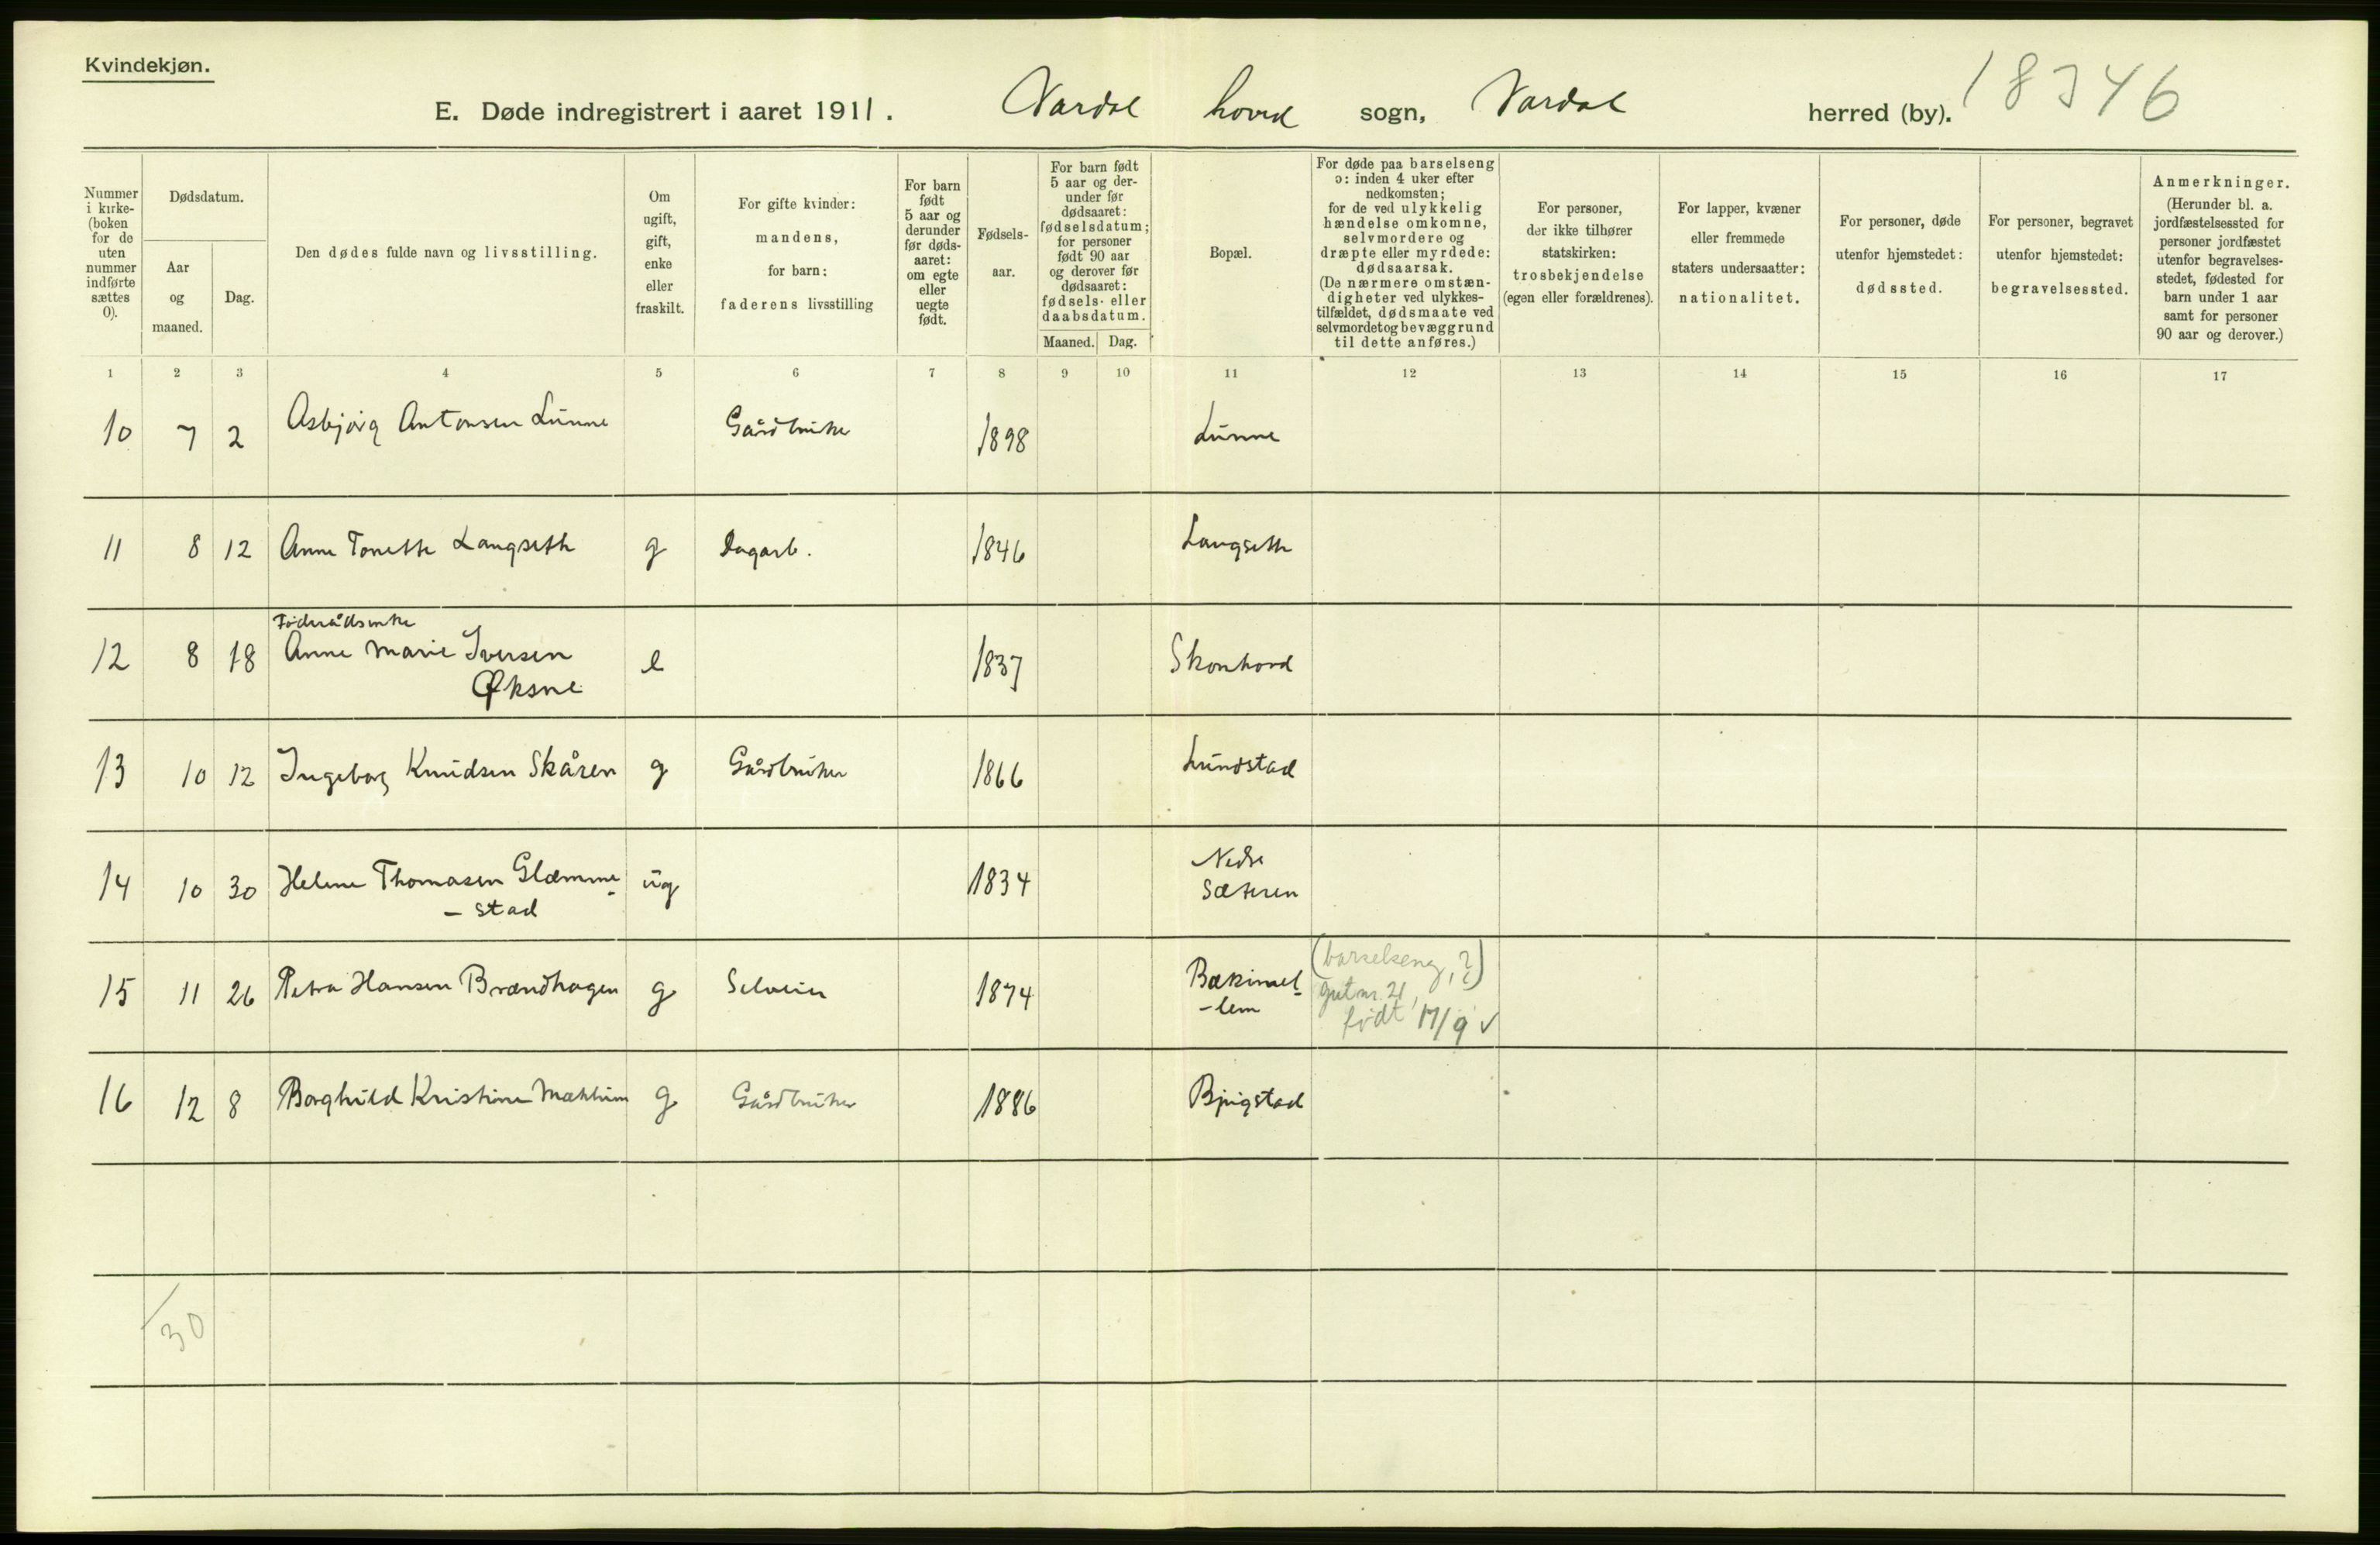 Kvindekjøn.
E. Døde indregistrert i aaret 1911. Vardal hoved sogn, Vardal herred (by). 18346
Nummer i kirke-(boken for de uten nummer indførte sættes 0).
Dødsdatum.
Aar og maaned.
Dag.
Den dødes fulde navn og livsstilling.
Om ugift, gift, enke eller fraskilt.
For gifte kvinder: mandens, for barn: faderens livsstilling
For barn født 5 aar og derunder før døds-aaret: om egte eller uegte født.
Fødsels-aar.
For barn født 5 aar og der-under før dødsaaret: fødselsdatum; for personer født 90 aar og derover før dødsaaret: fødsels- eller daabsdatum.
Maaned. Dag.
Bopæl.
For døde paa barselseng ɔ: inden 4 uker efter nedkomsten; for de ved ulykkelig hændelse omkomne, selvmordere og dræpte eller myrdede: dødsaarsak. (De nærmere omstæn-digheter ved ulykkes-tilfældet, dødsmaate ved selvmordet og bevæggrund til dette anføres.)
For personer, der ikke tilhører statskirken: trosbekjendelse (egen eller forældrenes).
For lapper, kvæner eller fremmede staters undersaatter: nationalitet.
For personer, døde utenfor hjemstedet: dødssted.
For personer, begravet utenfor hjemstedet: begravelsessted.
Anmerkninger. (Herunder bl. a. jordfæstelsessted for personer jordfæstet utenfor begravelses-stedet, fødested for barn under 1 aar samt for personer 90 aar og derover.)
1 2 3 4 5 6 7 8 9 10 11 12 13 14 15 16 17
10 7 2 Asbjørg Antonsen Lunne Gårdbruker 1898 Lunne
11 8 12 Anne Tonette Langseth g Dagarb. 1846 Langseth
Føderådsenke
12 8 18 Anne Marie Iversen e 1837 Skonhovd
Øksne
13 10 12 Ingeborg Knudsen Skåren g Gårdbruker 1866 Lundstad
14 10 30 Helene Thomasen Glæmme- ug 1834 Nedre
- stad Sæteren
(barselseng, ?)
15 11 26 Petra Hansen Brændhagen g Selveier 1874 Bækimel-
-lem gut nr. 21,
født 17/9 ✓
16 12 8 Borghild Kristine g Gårdbruker 1886
30